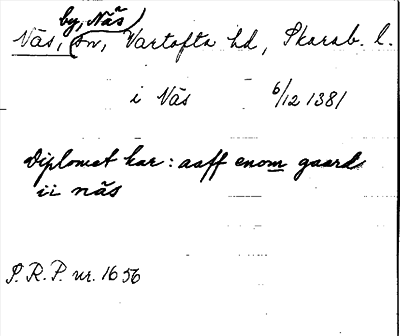 by, Näs
Näs, sn, Vartofta hd, Skarab. l.
i Näs 6/12 1381
Diplomet har: aaff enom gaardz
ii näs
S. R. P. nr. 1656